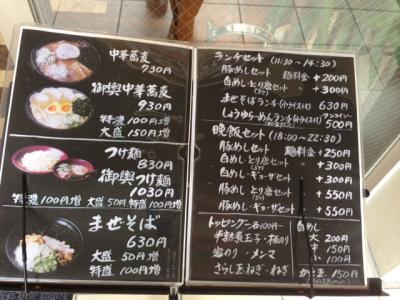 中華蕎麦
730円
御輿中華蕎麦
930円
特濃 100円増
大盛 150円増
つけ麺
830円
御輿つけ麺
1030円
特濃 100円増 大盛 50円 特盛 100円増
まぜそば
630円
大盛 50円増
特盛 100円増
ランチセット (11:30〜14:30)
豚めしセット 麺料金+200円
白めし・とり唐セット +300円
まぜそばランチ(小ライス付) 630円
しょうゆらーめんランチ(小ライス付) ワンコイン 500円
晩飯セット (18:00〜22:30)
豚めしセット 麺料金+250円
白めし・とり唐セット +300円
白めし・ギョーザセット +300円
豚めし・とり唐セット +550円
豚めし・ギョーザセット +550円
トッピング一各100円一
半熟煮玉子・板のり
岩のり・メンマ
さらし玉ねぎ・ねぎ
白めし
大 200円
中 150円
小 100円
150円